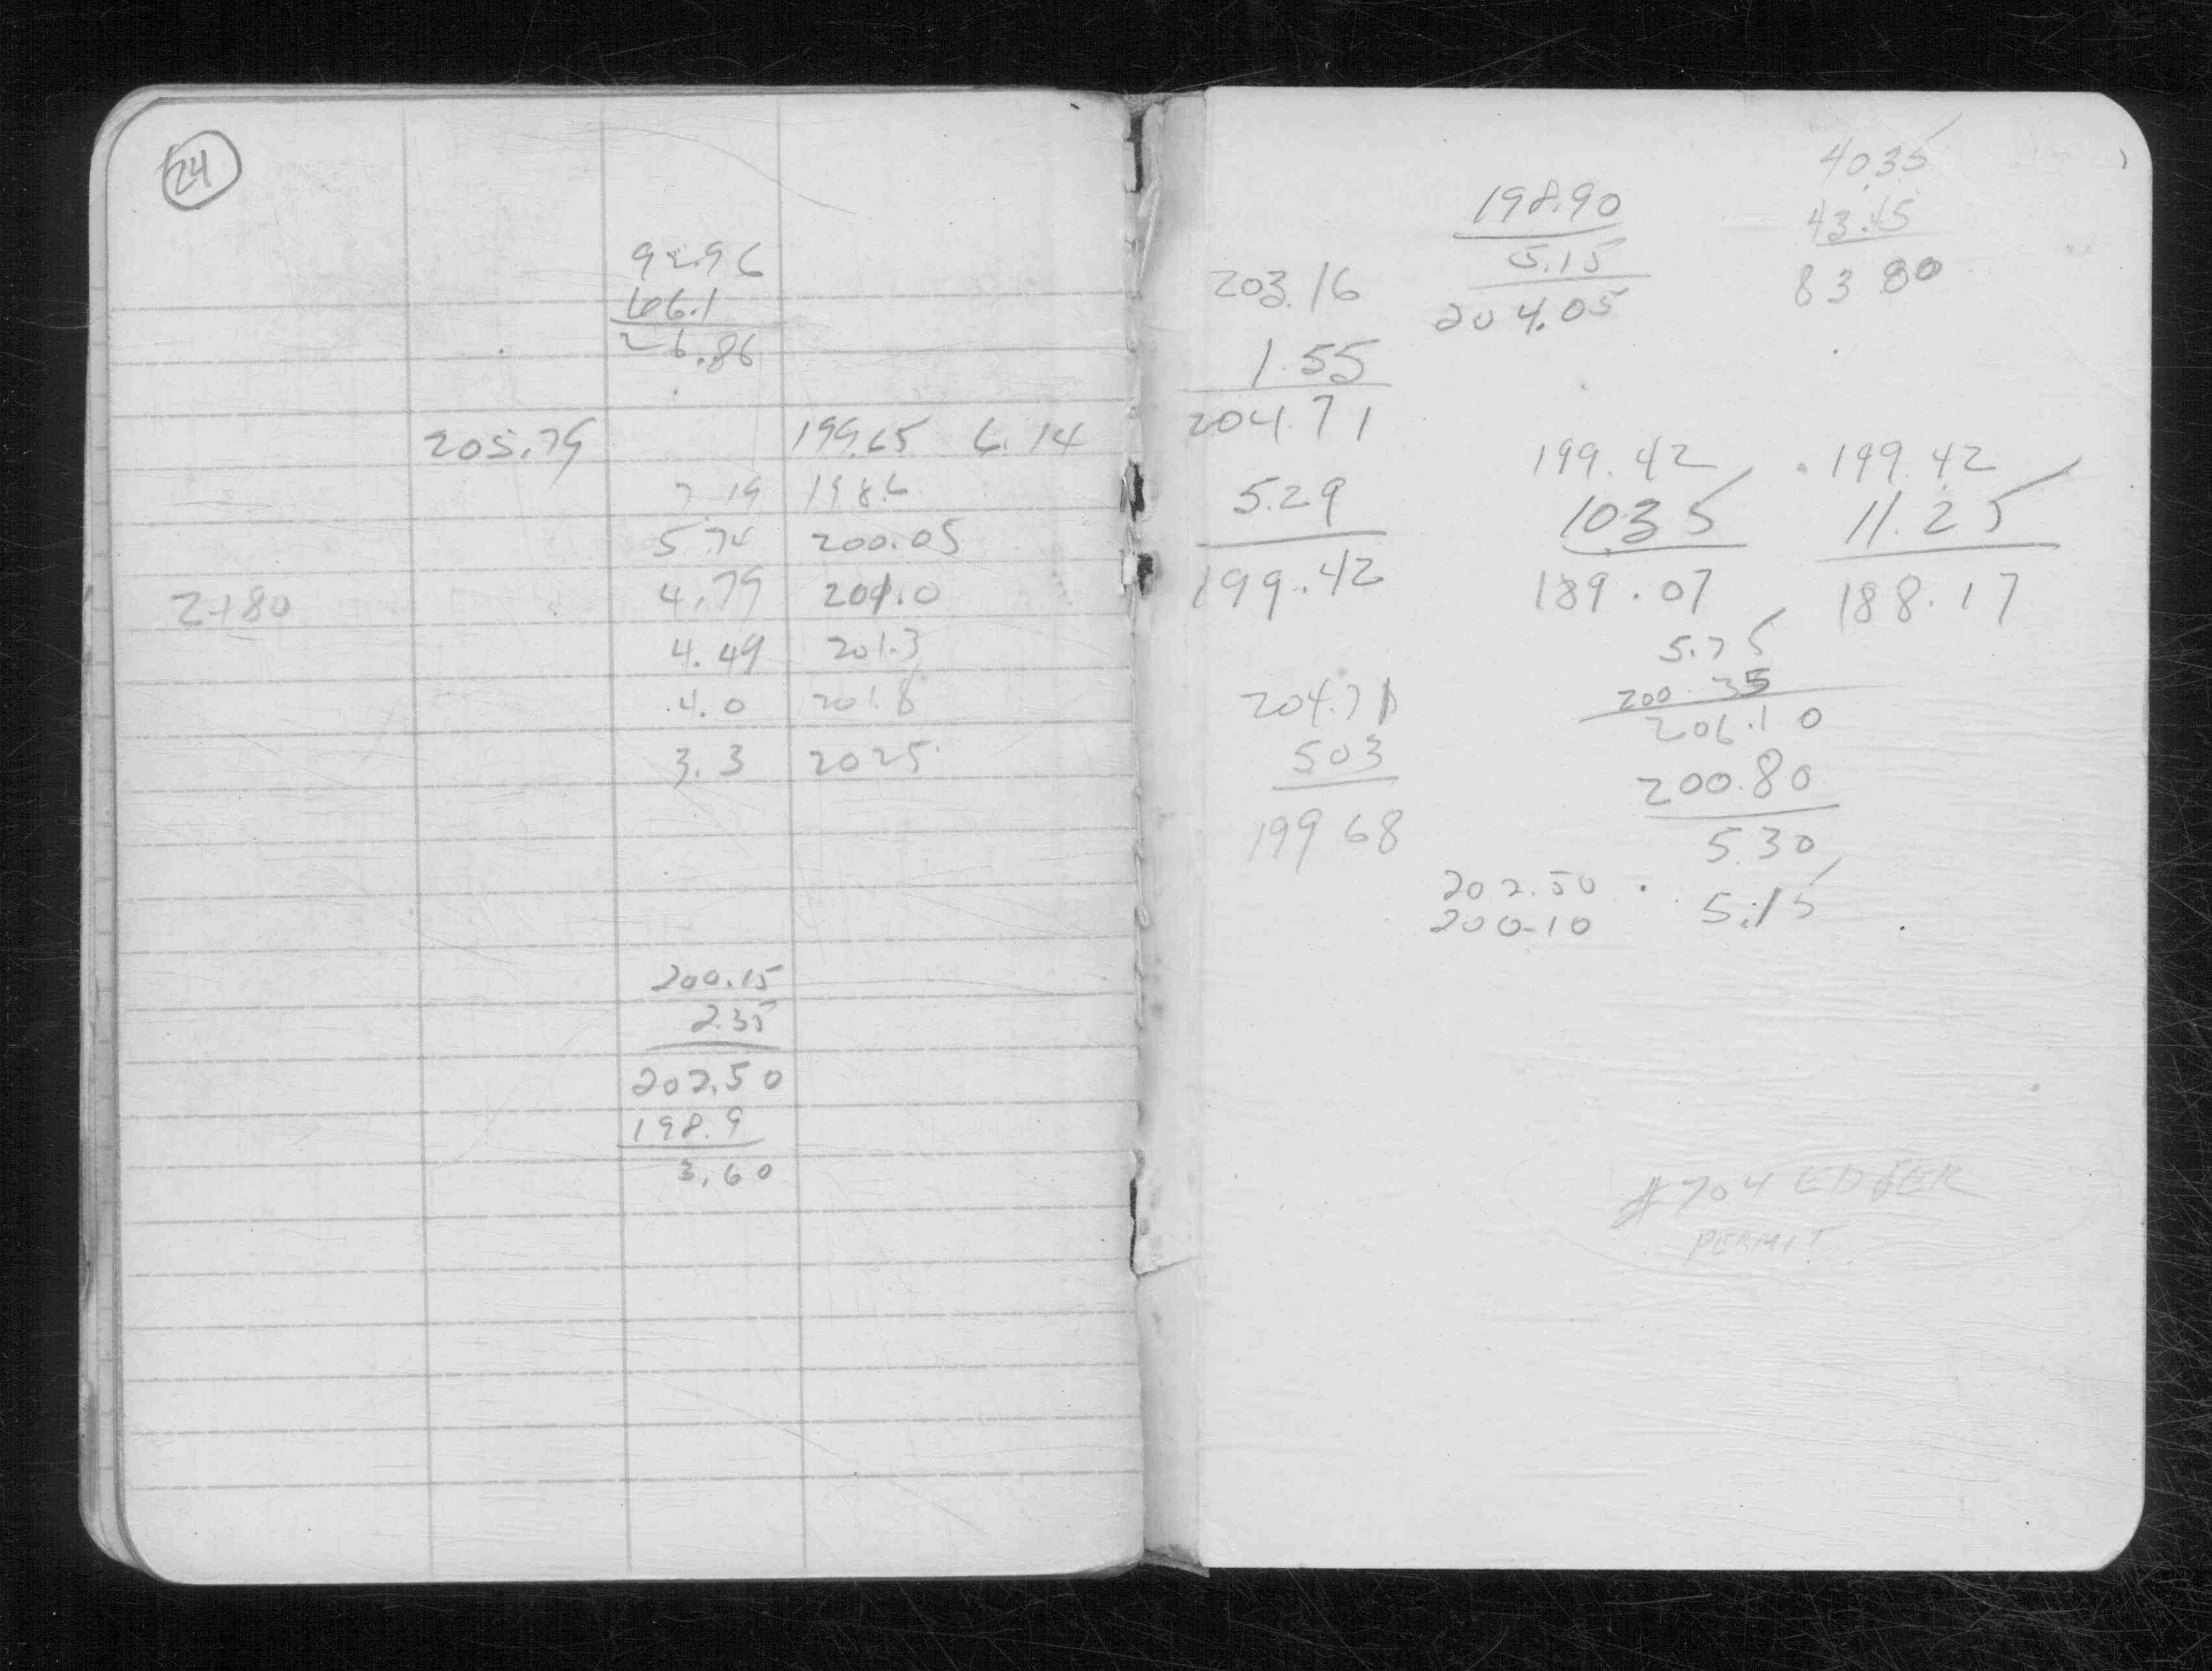 24
92.96
66.1
26.86
205.79 199.65 6.14
7.19 198.6
5.74 200.05
2+80 4.79 201.0
4.49 201.3
4.0 201.8
3.3 2025
200.15
2.35
202.50
198.9
3.60
203.16
1.55
204.71
5.29
199.42
204.71
503
199 68
198.90
5.15
204.05
40.35
43.45
83 80
199.42
1035
189.07
199.42
11.25
188.17
5.75
200.35
206.10
200.80
5.30
5.15
202.50
200.10
#704
PERMIT